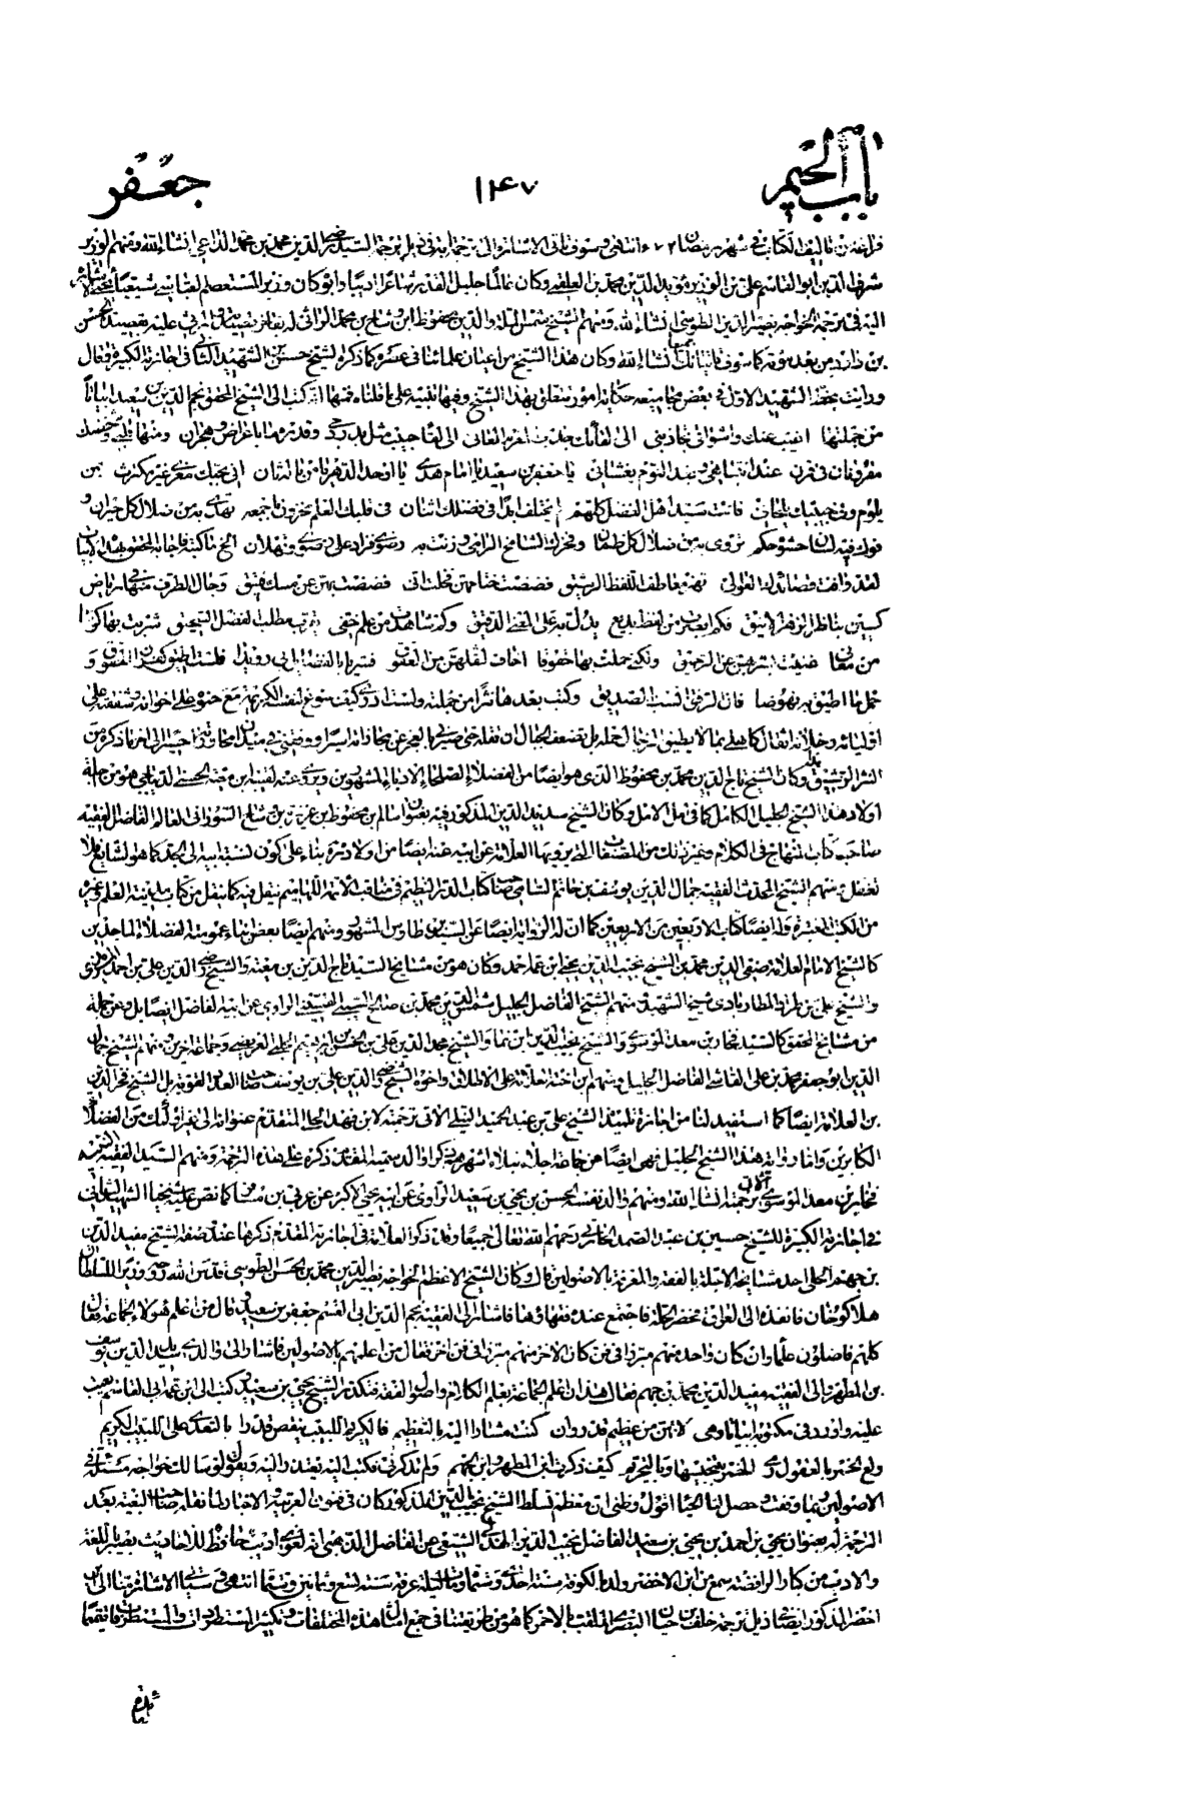 باب الجيم ١٤٧ جعفر
فراغه من تأليف الكتاب في شهر رمضان ٦٧٢ انتهى وسوف تأتى الاشارة الى ترجمته في ذيل ترجمة السيد رضى الدين محمد بن محمد الداعي انشاء الله ومنهم الوزير
شرف الدين ابو القاسم على بن الوزير مؤيد الدين محمد بن العلقمى وكان عالما جليل القدر شاعرا اديبا وابوه كان وزير المستعصم العباسي شيعيا
اليه في ترجمة الخواجه نصير الدين الطوسى انشاء الله ومنهم الشيخ شمس الملة والدين محفوظ بن وشاح بن محمد الذى
بن داود من بعد موته كما سوف انشاء الله وكان هذا الشيخ من اعيان علمائنا في عصره كما ذكره الشيخ حسن بن الشهيد الثانى في اجازته الكبيرة وقال
ورايت بخط الشهيد الاول في بعض مجاميعه حكاية امور تتعلق بهذا الشيخ وفيها تنبيه على ما قلناه فمنها انه كتب الى الشيخ المحقق نجم الدين بن سعيد ابياتا
من جملتها اغيب عنك واشواقى تجاذبنى الى لقائك جذب المغرم العانى الى لقاء حبيب مثل بدر دجى وقد رماه باعراض وهجران ومنها قلبى وشخصك
مقرونان في قرن عند انتباهى وبعد النوم يغشانى يا جعفر بن سعيد يا امام هدى يا اوحد الدهر يا من ما له ثان انى بحبك مغرى غير مكترث بمن
يلوم وفي حبيك يلحانى فانت سيد اهل الفضل كلهم لم يختلف ابدا في فضلك اثنان في قلبك العلم مخزون باجمعه تهدى به من ضلال كل حيران و
فوك فيه لسان حشوه حكم تروى به من زلال كل ظمآن وفخرك الشامخ الراسى وزنت به رضوى فزاد على رضوى وثهلان الخ
لقد وافت قصائدك العوالى تهز معاطف اللفظ الرشيق فضضت ختامهن فخلت انى فضضت بهن عن مسك فتيق وجال الطرف منها في رياض
كسين بناظر الزهر الانيق فكم ابصرت من لفظ بديع يدل به على المعنى الدقيق وكم شاهدت من علم خفى يقرب مطلب الفضل السحيق شربت بها كؤسا
من معانى غنيت بشربهن عن الرحيق ولكنى حملت بها حقوقا اخاف لثقلهن من العقوق فسر يا با الفضائل بى رويدا فلست اطيق كفران الحقوق و
حمل ما اطيق به نهوضا فان الرفق انسب بالصديق وكتب بعدها نثرا من جملته ولست ادرى كيف سوغ لنفسه الكريمة مع حنوه على اخوانه وشفقته على
اوليائه وخلانه اثقال كاهلى بما لا يطيق الرجال حمله بل تضعف الجبال ان تقله حتى صيرنى بالعجز عن مجازاته اسيرا
النثر الرشيق وكان الشيخ تاج الدين محمد بن محفوظ الذى هو ايضا من الفضلاء الصلحاء الادباء المشهورين ويروى عنه ابن معية الحسنى الديباجى هو من جملة
اولاد هذا الشيخ الجليل الكامل كما في امل الامل وكان الشيخ سديد الدين المذكور فيه بعنوان سالم بن محفوظ بن عزيزة بن وشاح السوراوى العالم الفاضل الفقيه
صاحب كتاب المنهاج في الكلام وغير ذلك من المصنفات التي يرويها العلامة عن ابيه عنه ايضا من اولاده بناء على كون نسبة ابيه الى الجد كما هو الشايع
ومنهم الشيخ المحدث الفقيه جمال الدين يوسف بن حاتم الشامى صاحب كتاب الدر النظيم في مناقب الائمة اللهاميم ينقل فيه كما ينقل من كتاب مدينة العلم وغيره
من الكتب المعتبرة وله ايضا كتاب الاربعين عن الاربعين كما ان له الرواية ايضا عن السيد بن طاوس المشهور ومنهم ايضا بعض ابناء عمومته الفضلاء الماجدين
كالشيخ الامام العلامة صفى الدين محمد بن الشيخ نجيب الدين يحيى ابن عمه احمد وكان هو من مشايخ السيد تاج الدين بن معية والشيخ رضى الدين على بن احمد المزيدى
والشيخ على بن طراد المطارابادى شيخى الشهيد ومنهم الشيخ الفاضل الجليل شمس الدين محمد بن صالح السيبى القسينى الراوى عن ابيه الفاضل ايضا بل وعن جملة
من مشايخ المحقق كالسيد فخار بن معد الموسوى والشيخ نجيب الدين ابن نما والشيخ مجد الدين على بن الحسن بن ابراهيم الحلبى العريضى وجماعة اخرين ومنهم الشيخ جمال
الدين ابو جعفر محمد بن على القاشى الفاضل الجليل ومنهم ابن اخته العلامة على الاطلاق واخوه الشيخ رضى الدين على بن يوسف صاحب العدد القوية بل الشيخ فخر الدين
بن العلامة ايضا كما استفيد لنا من اجازة تلميذ الشيخ على بن عبد الحميد النيلى الاتى ترجمته لابن فهد الحلى المتقدم عنوانه الى غير اولئك من الفضلاء
الكابرين واما رواية هذا الشيخ الجليل فهى ايضا عن جماعة اجلاء نبلاء اشهرهم ذكرا والد سميه المقدم ذكره على هذه الترجمة ومنهم السيد الفقيه النبيه
فخار بن معد الموسوى الاتى ترجمته انشاء الله ومنهم والد نفسه الحسن بن يحيى بن سعيد الراوى عن ابيه يحيى الاكبر عن عربى بن مسافر كما نص عليه شيخنا الشهيد الثانى
في اجازته الكبيرة للشيخ حسين بن عبد الصمد الحارثى رحمهم الله تعالى جميعا وقد ذكر العلامة في اجازته المقدم ذكرها عند صفة الشيخ مفيد الدين
بن جهم الحلى احد مشايخه الاجلة بالفقه والمعرفة بالاصولين قال وكان الشيخ الاعظم الخواجه نصير الدين محمد بن الحسن الطوسى قدس الله روحه وزير السلطان
هلاكوخان فانفذه الى العراق فحضر الحلة فاجتمع عنده فقهاؤها فاشار الى الفقيه نجم الدين ابى القسم جعفر بن سعيد وقال من اعلم هؤلاء الجماعة فقال
كلهم فاضلون علماء ان كان واحد منهم مبرزا في فن كان الاخر منهم مبرزا في فن اخر فقال من اعلمهم بالاصولين فاشار الى والدى سديد الدين يوسف
بن المطهر والى الفقيه مفيد الدين محمد بن جهم فقال هذان اعلم الجماعة بعلم الكلام واصول الفقه فتكدر الشيخ يحيى بن سعيد وكتب الى ابن عمه ابى القاسم يعيب
عليه واورد في مكتوبه ابياتا وهى لا تهن من عظيم قدر وان كنت مشارا اليه بالتعظيم فاللبيب الكريم ينقص قدرا بالتعدى على اللبيب الكريم
ولع الخمر بالعقول رمى الخمر بتنجيسها وبالتحريم كيف ذكرت ابن المطهر وابن الجهم ولم تذكرنى فكتب اليه يعتذر اليه ويقول لو سالك خواجه مسئلة في
الاصولين ربما وقفت وحصل لنا الحياء اقول وظنى ان معظم تسلط الشيخ نجيب الدين المذكور كان في فنون العربية والاخبار لما نقله صاحب البغية بعد
الترجمة له بعنوان يحيى بن احمد بن يحيى بن سعيد الفاضل نجيب الدين الهذلى الشيعى عن الفاضل الذهبى انه لغوى اديب حافظ للاحاديث بصير باللغة
والادب من كبار الرافضة سمع من ابن الاخضر ولد بالكوفة سنة احدى وستمائة ومات ليلة عرفة سنة تسع وثمانين وستمائة انتهى وسياتى الاشارة منا الى ابن
اخضر المذكور ايضا في ذيل ترجمة خلف بن حيان البصرى الملقب بالاحمر كما هو من طريقتنا في جمع امثال هذه المختلفات وتكثير المستطردات والمستطرفات